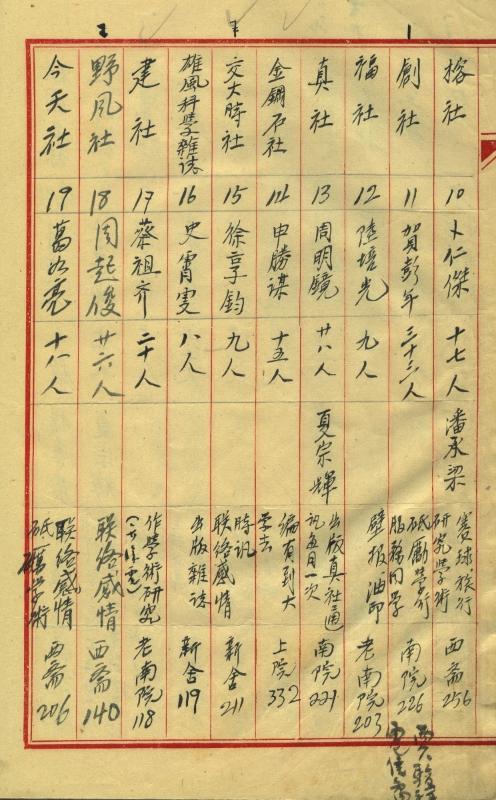 榕社 10 卜仁傑 十七人 潘承梁 賽球旅行 研究學術 西斋256
創社 11 賀彭年 三十三人 砥礪學行 服務同學 南院226
福社 12 陸培光 九人 壁报 油印 老南院203
真社 13 周明鏡 廿八人 夏宗輝 出版真社通訊每月一次 南院221
金鋼石社 14 申勝謀 十五人 上院332
交大時社 15 徐享鈞 九人 時訊 联络感情 新舍211
雄風科學雜誌 16 史霄雯 八人 出版雜誌 新舍119
建社 17 蔡祖齐 二十人 作學術研究 老南院118
野风社 18 周起俊 廿六人 联络感情 西斋140
今天社 19 葛如亮 十八人 联络感情 砥礪學術 西斋206